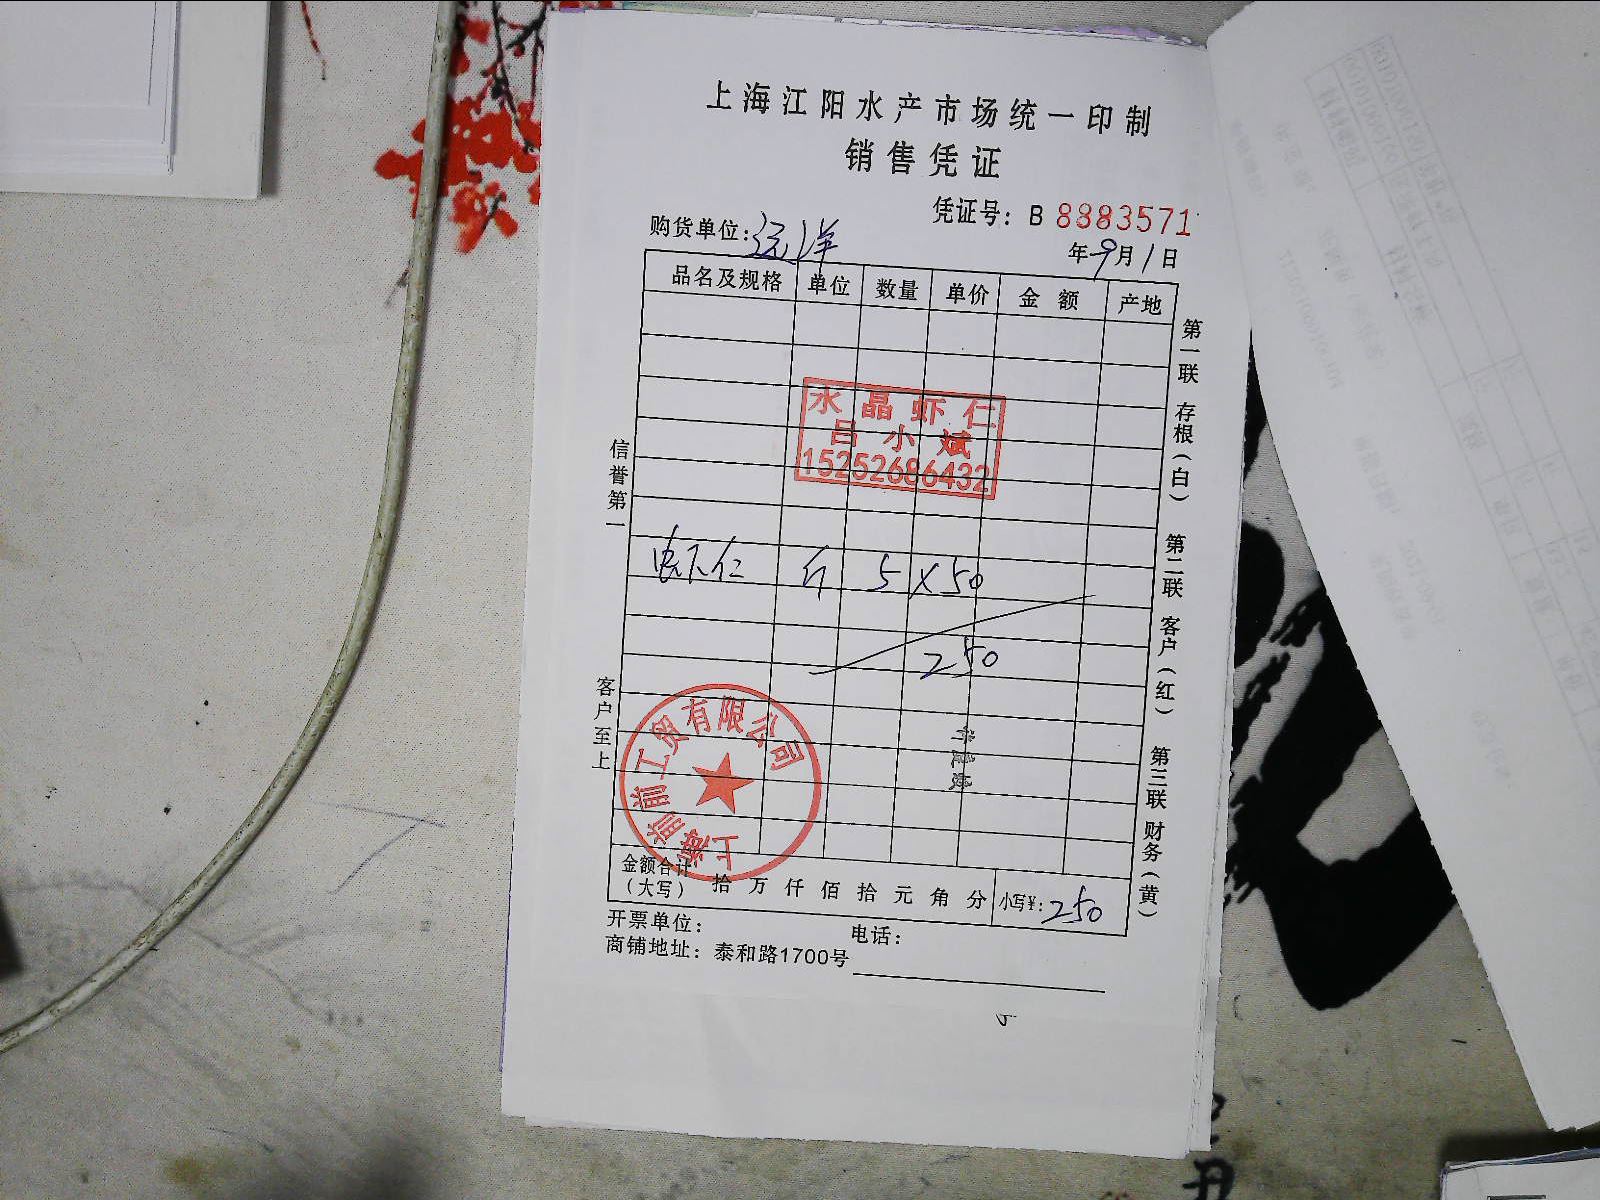 上海江阳水产市场统一印制
销售凭证
凭证号：B 8883571
购货单位：远洋
年9月1日
品名及规格 单位 数量 单价 金额 产地
水晶虾仁
吕小斌
15252686432
虾仁 斤 5×50
250
上海前前工贸有限公司
金额合计（大写） 拾 万 仟 佰 拾 元 角 分 小写¥：250
开票单位： 电话：
商铺地址：泰和路1700号
信誉第一
客户至上
第一联 存根（白）
第二联 客户（红）
第三联 财务（黄）